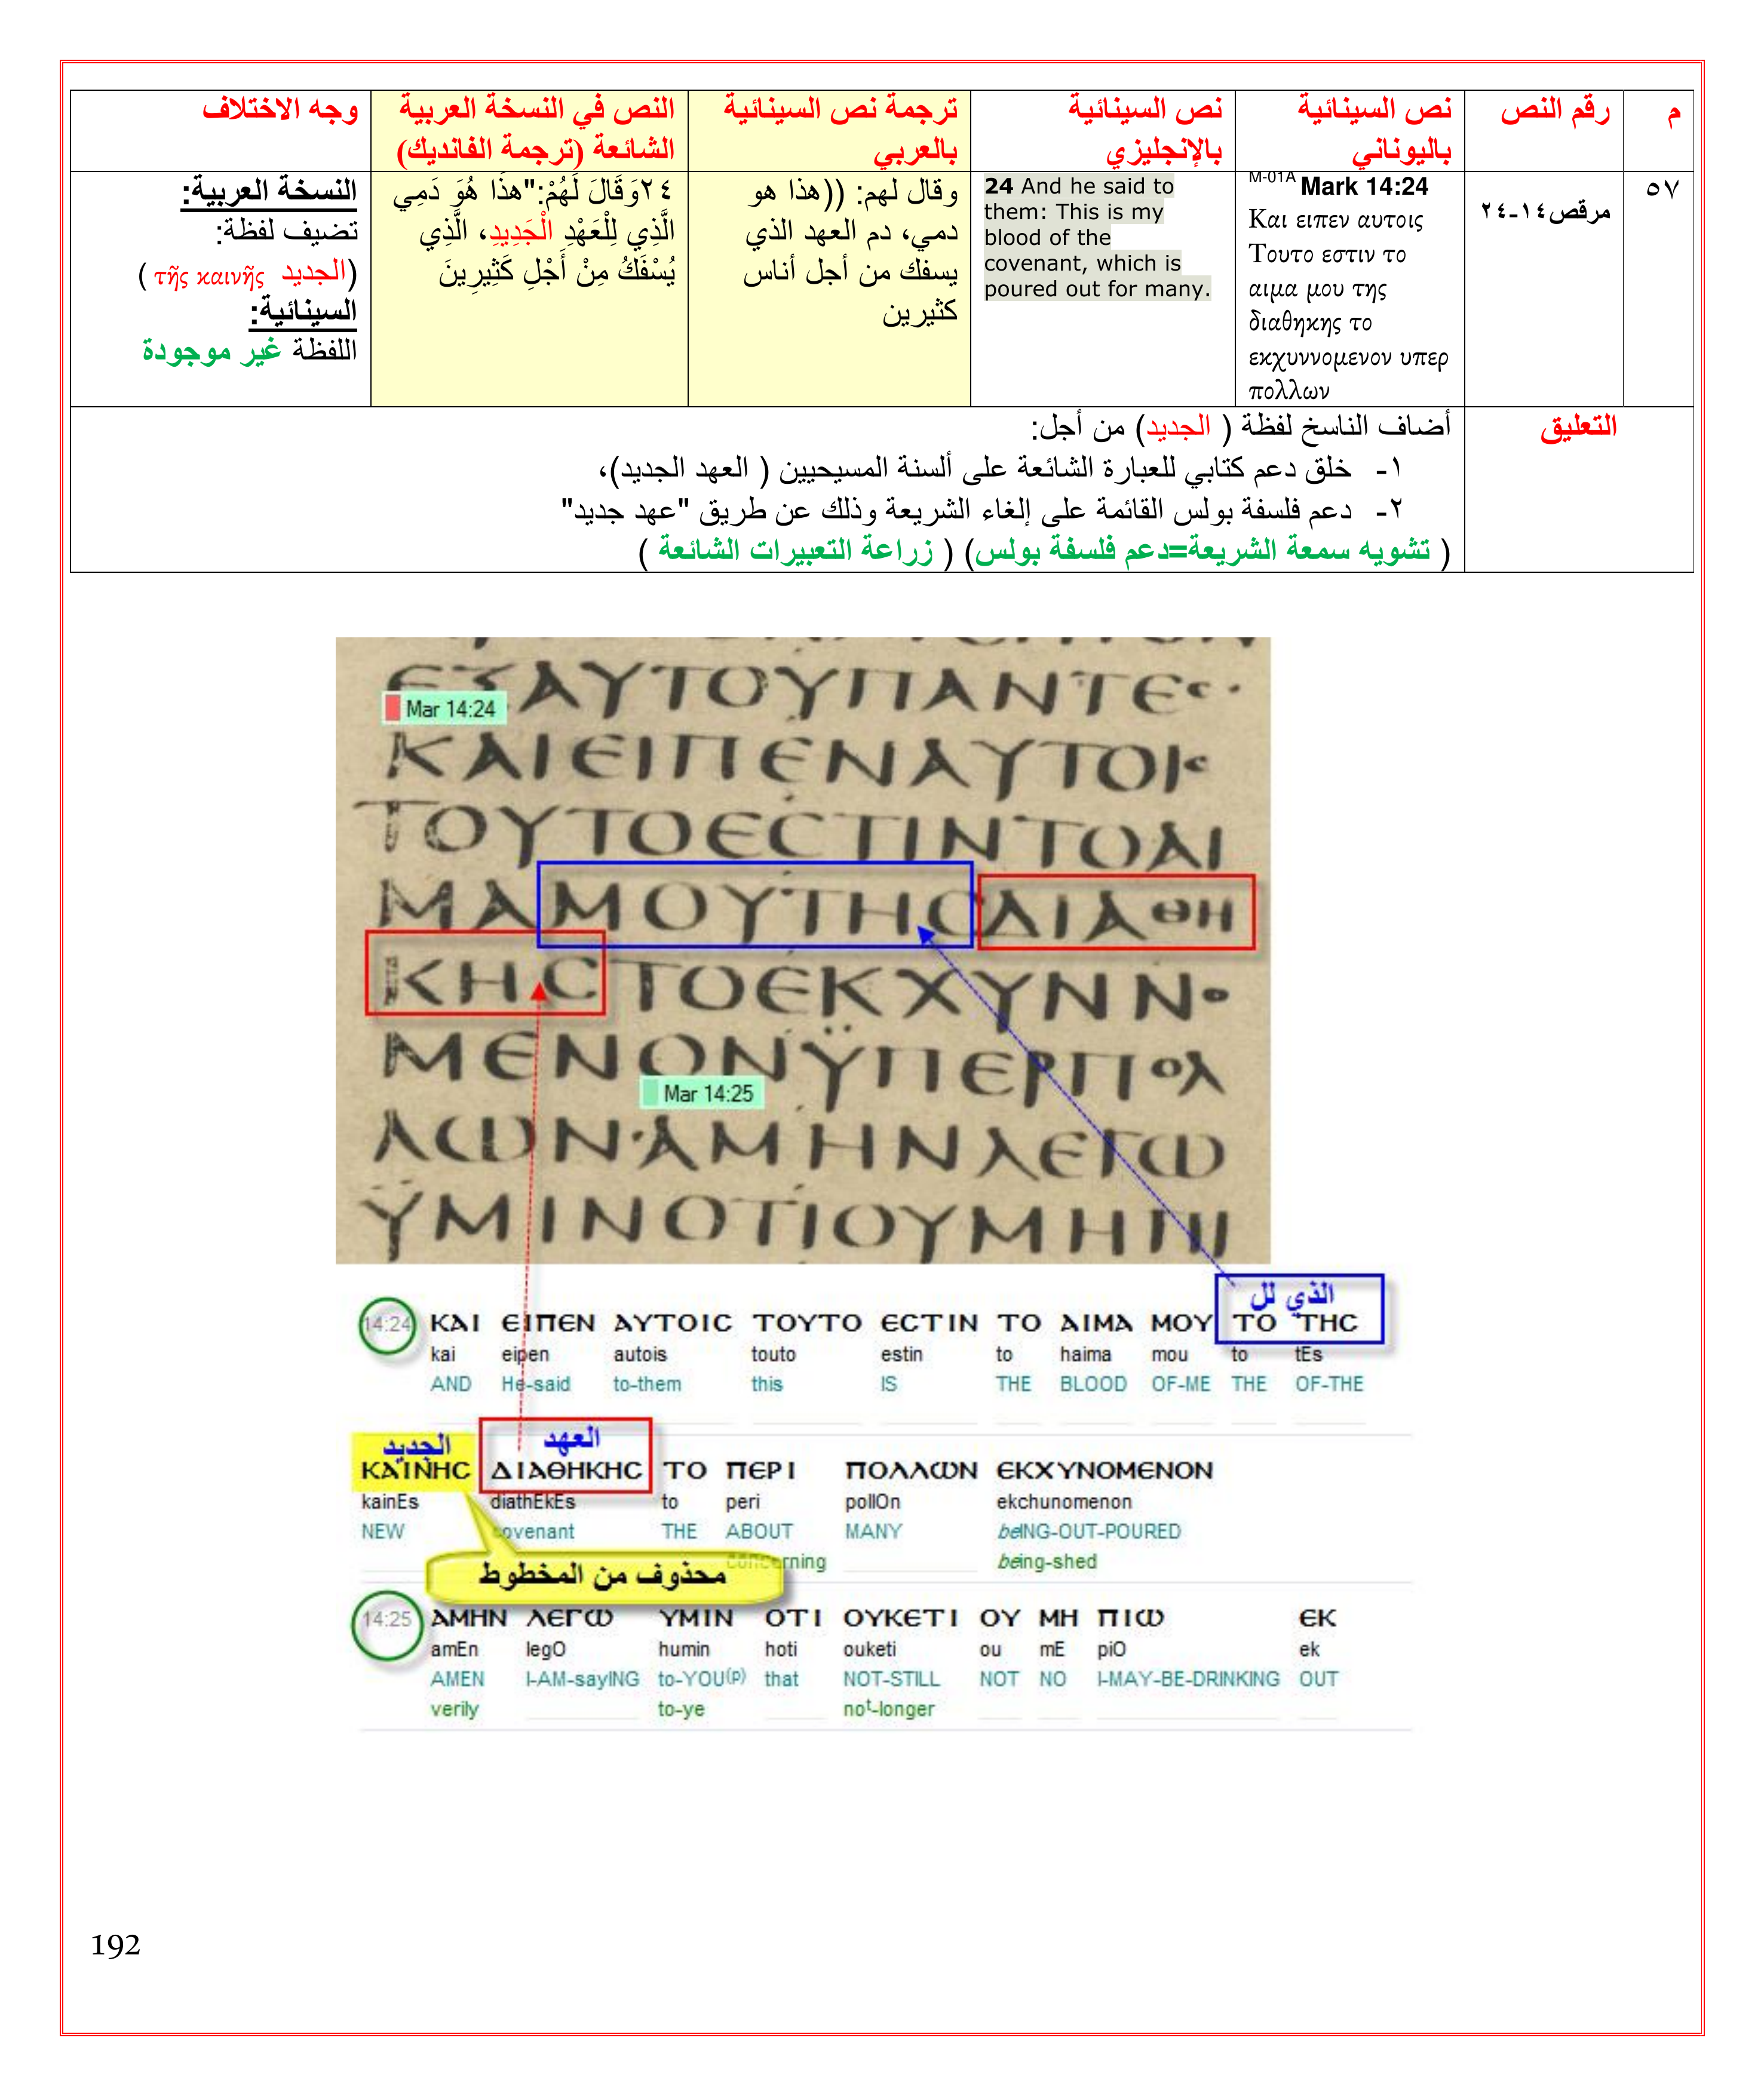 م
رقم النص
نص السينائية
باليوناني
نص السينائية
بالإنجليزي
ترجمة نص السينائية
بالعربي
النص في النسخة العربية
الشائعة (ترجمة الفانديك)
وجه الاختلاف
٥٧
مرقص١٤-٢٤
M-01A Mark 14:24
Και ειπεν αυτοις
Τουτο εστιν το
αιμα μου της
διαθηκης το
εκχυννομενον υπερ
πολλων
24 And he said to
them: This is my
blood of the
covenant, which is
poured out for many.
وقال لهم: ((هذا هو
دمي، دم العهد الذي
يسفك من أجل أناس
كثيرين
٢٤وَقَالَ لَهُمْ:"هذَا هُوَ دَمِي
الَّذِي لِلْعَهْدِ الْجَدِيدِ، الَّذِي
يُسْفَكُ مِنْ أَجْلِ كَثِيرِينَ
النسخة العربية:
تضيف لفظة:
(الجديد τῆς καινῆς )
السينائية:
اللفظة غير موجودة
التعليق
أضاف الناسخ لفظة ( الجديد) من أجل:
١- خلق دعم كتابي للعبارة الشائعة على ألسنة المسيحيين ( العهد الجديد)،
٢- دعم فلسفة بولس القائمة على إلغاء الشريعة وذلك عن طريق "عهد جديد"
( تشويه سمعة الشريعة=دعم فلسفة بولس) ( زراعة التعبيرات الشائعة )
ΕΞΑΥΤΟΥΠΑΝΤΕϹ·
Mar 14:24
ΚΑΙΕΙΠΕΝΑΥΤΟΙϹ
ΤΟΥΤΟΕϹΤΙΝΤΟΑΙ
ΜΑΜΟΥΤΗϹΔΙΑΘΗ
ΚΗϹΤΟΕΚΧΥΝΝΟ
ΜΕΝΟΝΫΠΕΡΠΟΛ
Mar 14:25
ΛΩΝ·ΑΜΗΝΛΕΓΩ
ΫΜΙΝΟΤΙΟΥΜΗΠΙ
الذي لل
14:24 ΚΑΙ ΕΙΠΕΝ ΑΥΤΟΙϹ ΤΟΥΤΟ ΕϹΤΙΝ ΤΟ ΑΙΜΑ ΜΟΥ ΤΟ ΤΗϹ
kai eipen autois touto estin to haima mou to tEs
AND He-said to-them this IS THE BLOOD OF-ME THE OF-THE
الجديد العهد
ΚΑΙΝΗϹ ΔΙΑΘΗΚΗϹ ΤΟ ΠΕΡΙ ΠΟΛΛΩΝ ΕΚΧΥΝΟΜΕΝΟΝ
kainEs diathEkEs to peri pollOn ekchunomenon
NEW covenant THE ABOUT MANY beING-OUT-POURED
concerning being-shed
محذوف من المخطوط
14:25 ΑΜΗΝ ΛΕΓΩ ΥΜΙΝ ΟΤΙ ΟΥΚΕΤΙ ΟΥ ΜΗ ΠΙΩ ΕΚ
amEn legO humin hoti ouketi ou mE piO ek
AMEN I-AM-sayING to-YOU(p) that NOT-STILL NOT NO I-MAY-BE-DRINKING OUT
verily to-ye not-longer
192